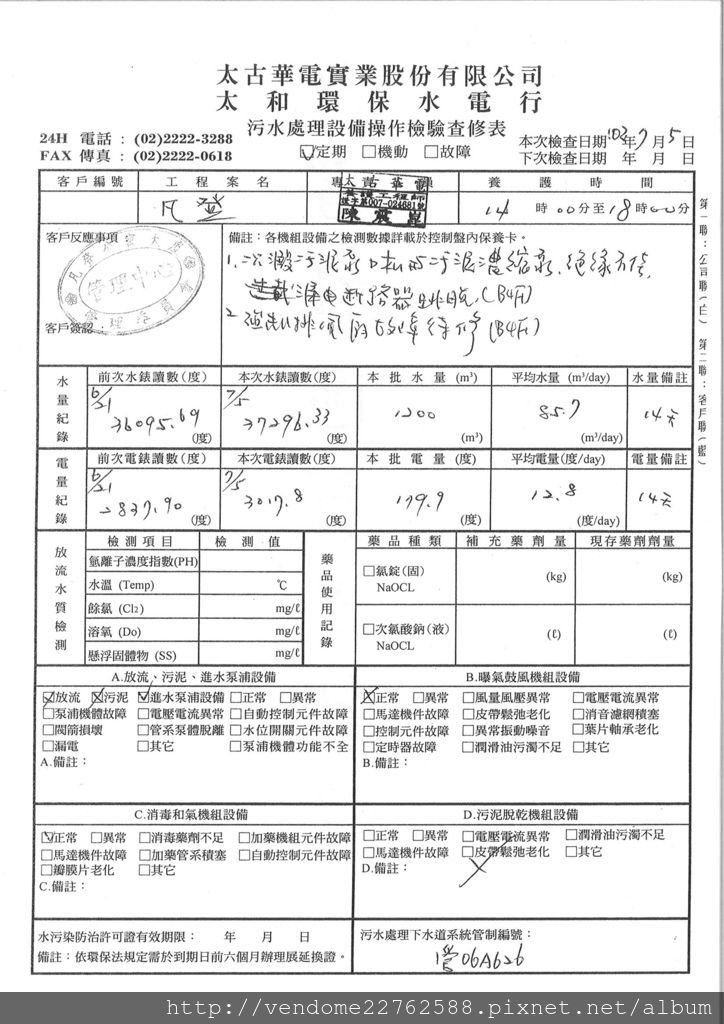 太古華電實業股份有限公司
太和環保水電行
污水處理設備操作檢驗查修表
24H 電話：(02)2222-3288
FAX 傳真：(02)2222-0618
☑定期 □機動 □故障
本次檢查日期 103年7月5日
下次檢查日期 年 月 日
客戶編號 工程案名 養護時間
凡登
太古華電
陳震崑
14時00分至18時00分
客戶反應事項
管理中心
管理委員會
客戶簽認：
備註：各機組設備之檢測數據詳載於控制盤內保養卡。
2. 故障待修(B4F)
第一聯：公司聯(白) 第二聯：客戶聯(藍)
水量紀錄
前次水錶讀數(度) 本次水錶讀數(度) 本批水量(m³) 平均水量(m³/day) 水量備註
6/21 36095.69 (度)
7/5 37296.33 (度)
1200 (m³)
85.7 (m³/day)
14天
電量紀錄
前次電錶讀數(度) 本次電錶讀數(度) 本批電量(度) 平均電量(度/day) 電量備註
6/21 2837.90 (度)
7/5 3017.8 (度)
179.9 (度)
12.8 (度/day)
14天
放流水質檢測
檢測項目 檢測值
氫離子濃度指數(PH)
水溫 (Temp) ℃
餘氯 (Cl2) mg/ℓ
溶氧 (Do) mg/ℓ
懸浮固體物 (SS) mg/ℓ
藥品使用記錄
藥品種類 補充藥劑量 現存藥劑劑量
□氯錠(固) NaOCL (kg) (kg)
□次氯酸鈉(液) NaOCL (ℓ) (ℓ)
A.放流、污泥、進水泵浦設備
☑放流 ☒污泥 ☑進水泵浦設備 □正常 □異常
□泵浦機體故障 □電壓電流異常 □自動控制元件故障
□閥箭損壞 □管系泵體脫離 □水位開關元件故障
□漏電 □其它 □泵浦機體功能不全
A.備註：
B.曝氣鼓風機組設備
☒正常 □異常 □風量風壓異常 □電壓電流異常
□馬達機件故障 □皮帶鬆弛老化 □消音濾網積塞
□控制元件故障 □異常振動噪音 □葉片軸承老化
□定時器故障 □潤滑油污濁不足 □其它
B.備註：
C.消毒和氣機組設備
☑正常 □異常 □消毒藥劑不足 □加藥機組元件故障
□馬達機件故障 □加藥管系積塞 □自動控制元件故障
□瓣膜片老化 □其它
C.備註：
D.污泥脫乾機組設備
□正常 □異常 □電壓電流異常 □潤滑油污濁不足
□馬達機件故障 □皮帶鬆弛老化 □其它
D.備註：
水污染防治許可證有效期限： 年 月 日
備註：依環保法規定需於到期日前六個月辦理展延換證。
污水處理下水道系統管制編號：
管06A626
http://vendome22762588.pixnet.net/album